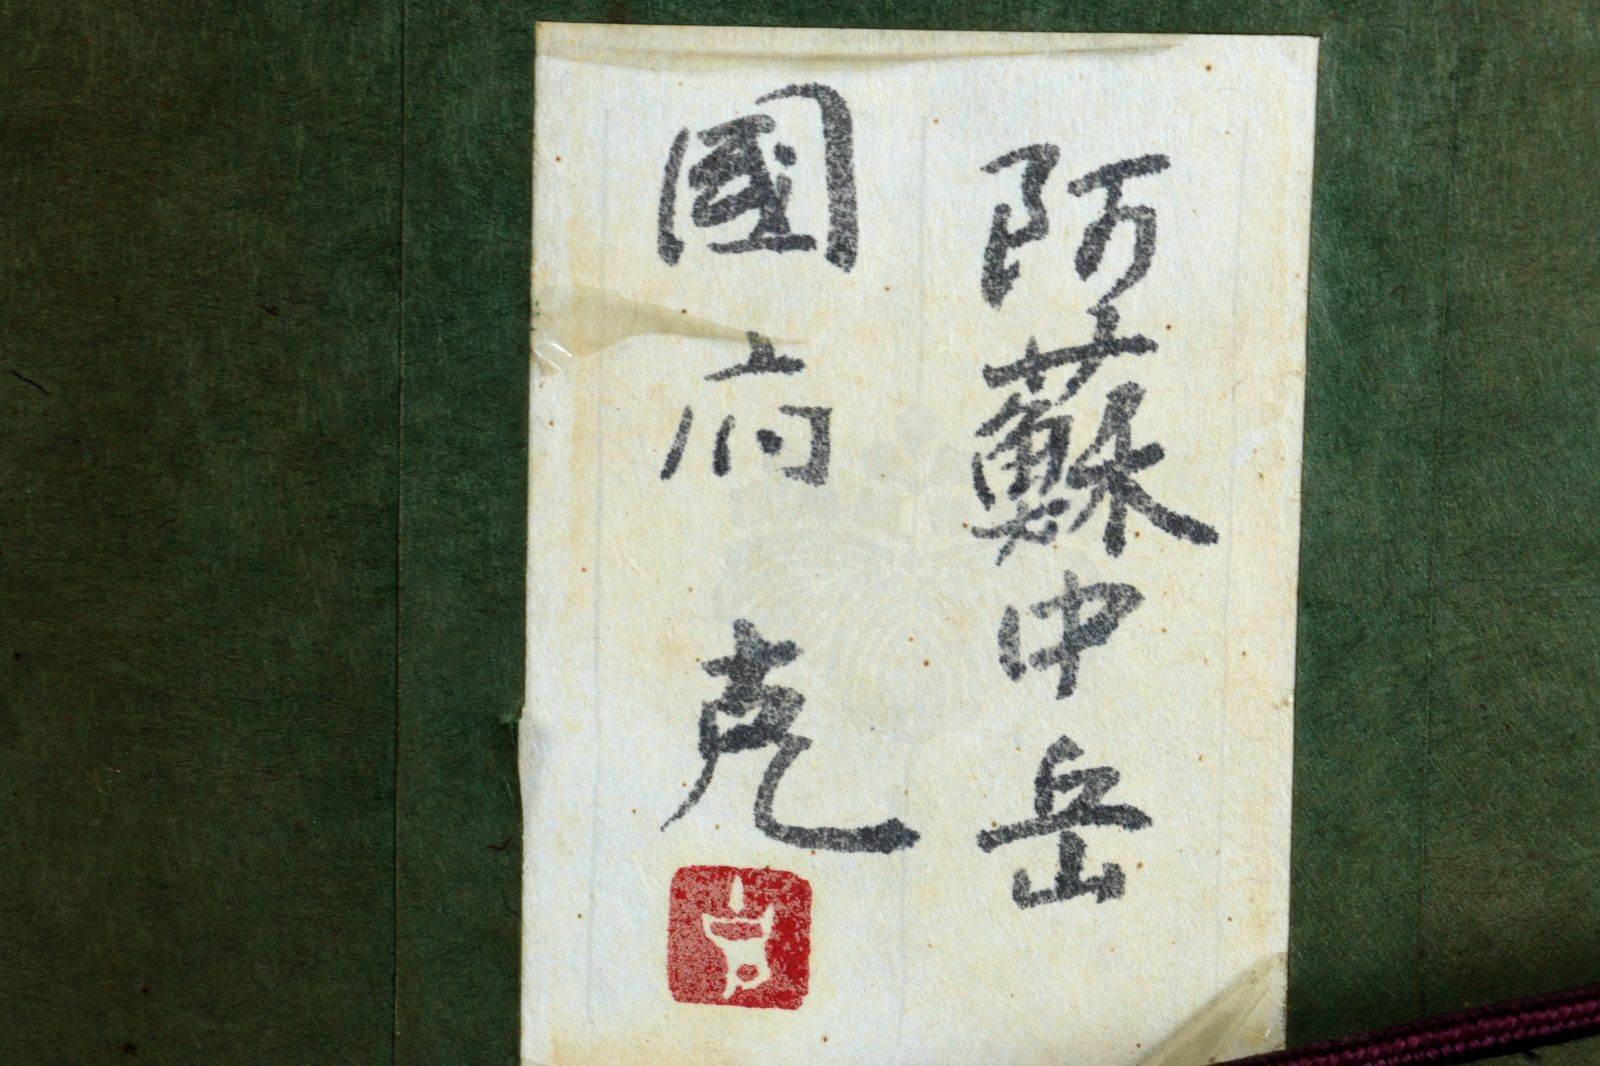 阿蘇中岳
國府克